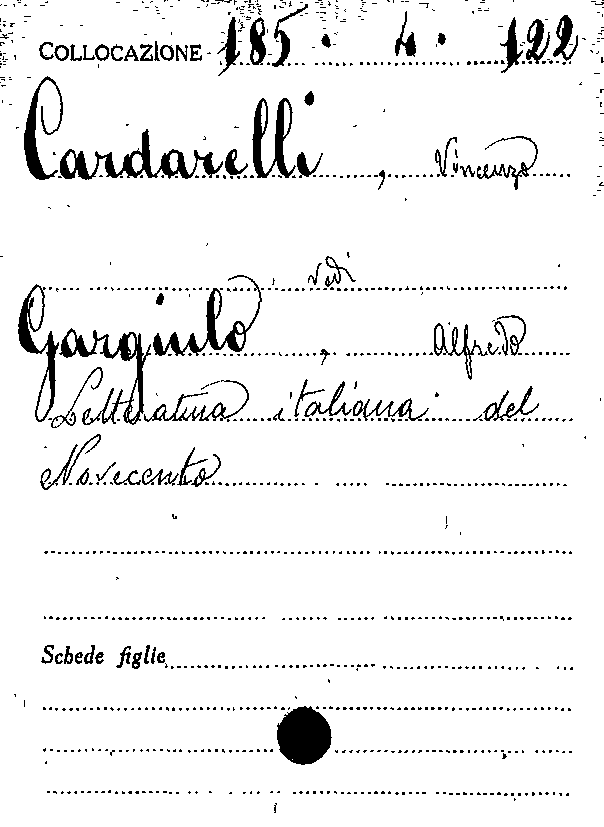 COLLOCAZIONE 185. 4. 122
Cardarelli, Vincenzo
vedi
Gargiulo, Alfredo
Letteratura italiana del
Novecento
Schede figlie